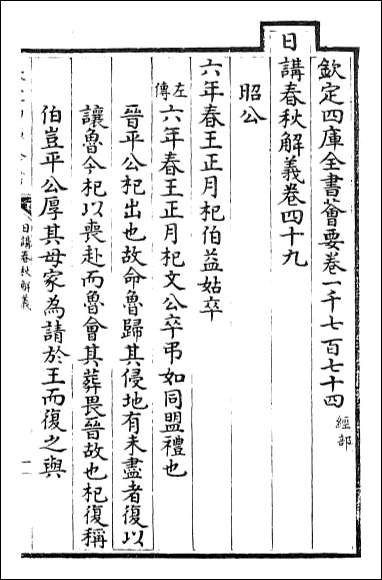 欽定四庫全書薈要卷一千七百七十四 經部
日講春秋解義卷四十九
昭公
六年春王正月杞伯益姑卒
左傳六年春王正月杞文公卒弔如同盟禮也
晉平公杞出也故命魯歸其侵地有未盡者復以
讓魯今杞以喪赴而魯會其葬畏晉故也杞復稱
伯豈平公厚其母家為請於王而復之與
日講春秋解義
一